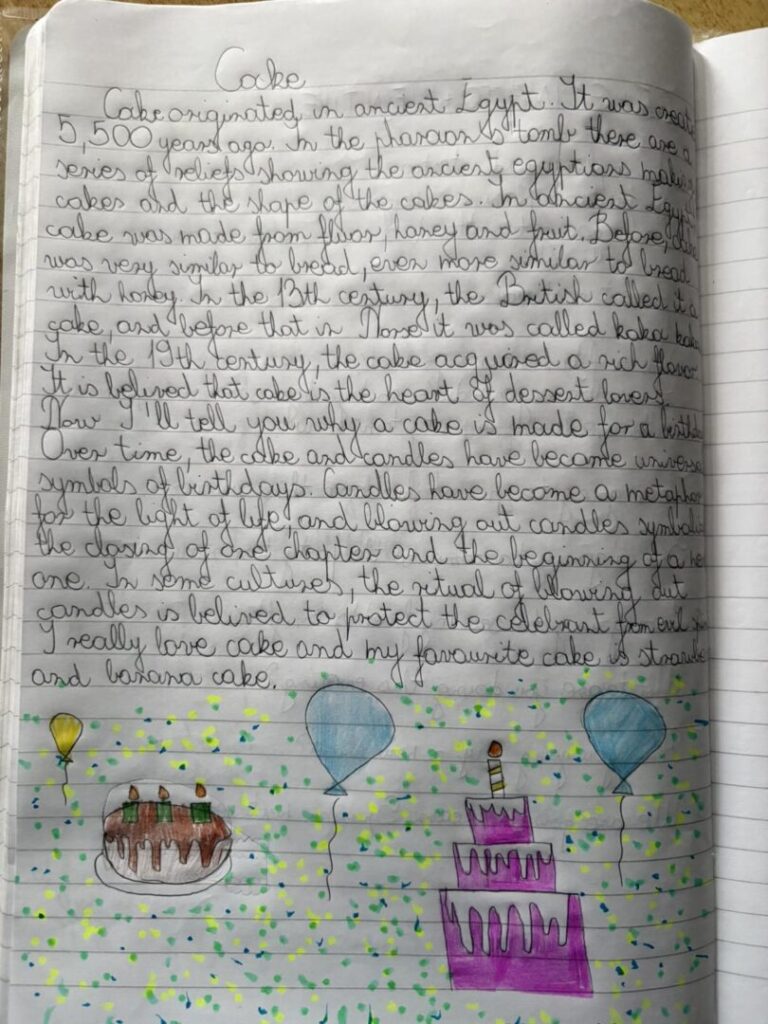 Cake
Cake originated in ancient Egypt. It was creat
5,500 years ago. In the pharaon's tomb there are a
series of reliefs showing the ancient egyptians making
cakes and the shape of the cakes. In ancient Egypt
cake was made from fluor, honey and fruit. Before, cake
was very similar to bread, even more similar to bread
with honey. In the 13th century, the British called it a
gake, and before that in Norse it was called kaka
In the 19th century, the cake acquired a rich flavor
It is belived that cake is the heart of dessert lovers.
Now I'll tell you why a cake is made for a birthda
Over time, the cake and candles have became univers
symbols of birthdays. Candles have become a metaphor
for the light of life, and blowing out candles symboli
the closing of one chapter and the beginning of a ne
one. In some cultures, the ritual of blowing out
candles is belived to protect the celebrant from evil
I really love cake and my favourite cake is strawbe
and banana cake.